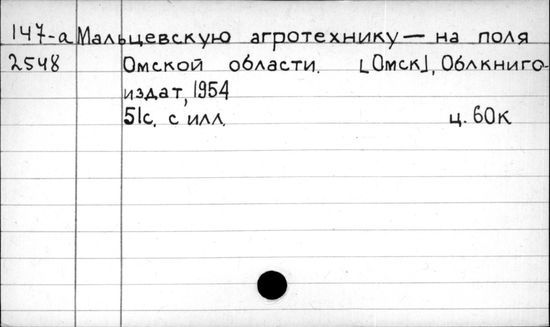 147-а Мальцевскую агротехнику — на поля
2548 Омской области. [Омск], Облкниго-
издат, 1954
51с. с илл. ц. 60к